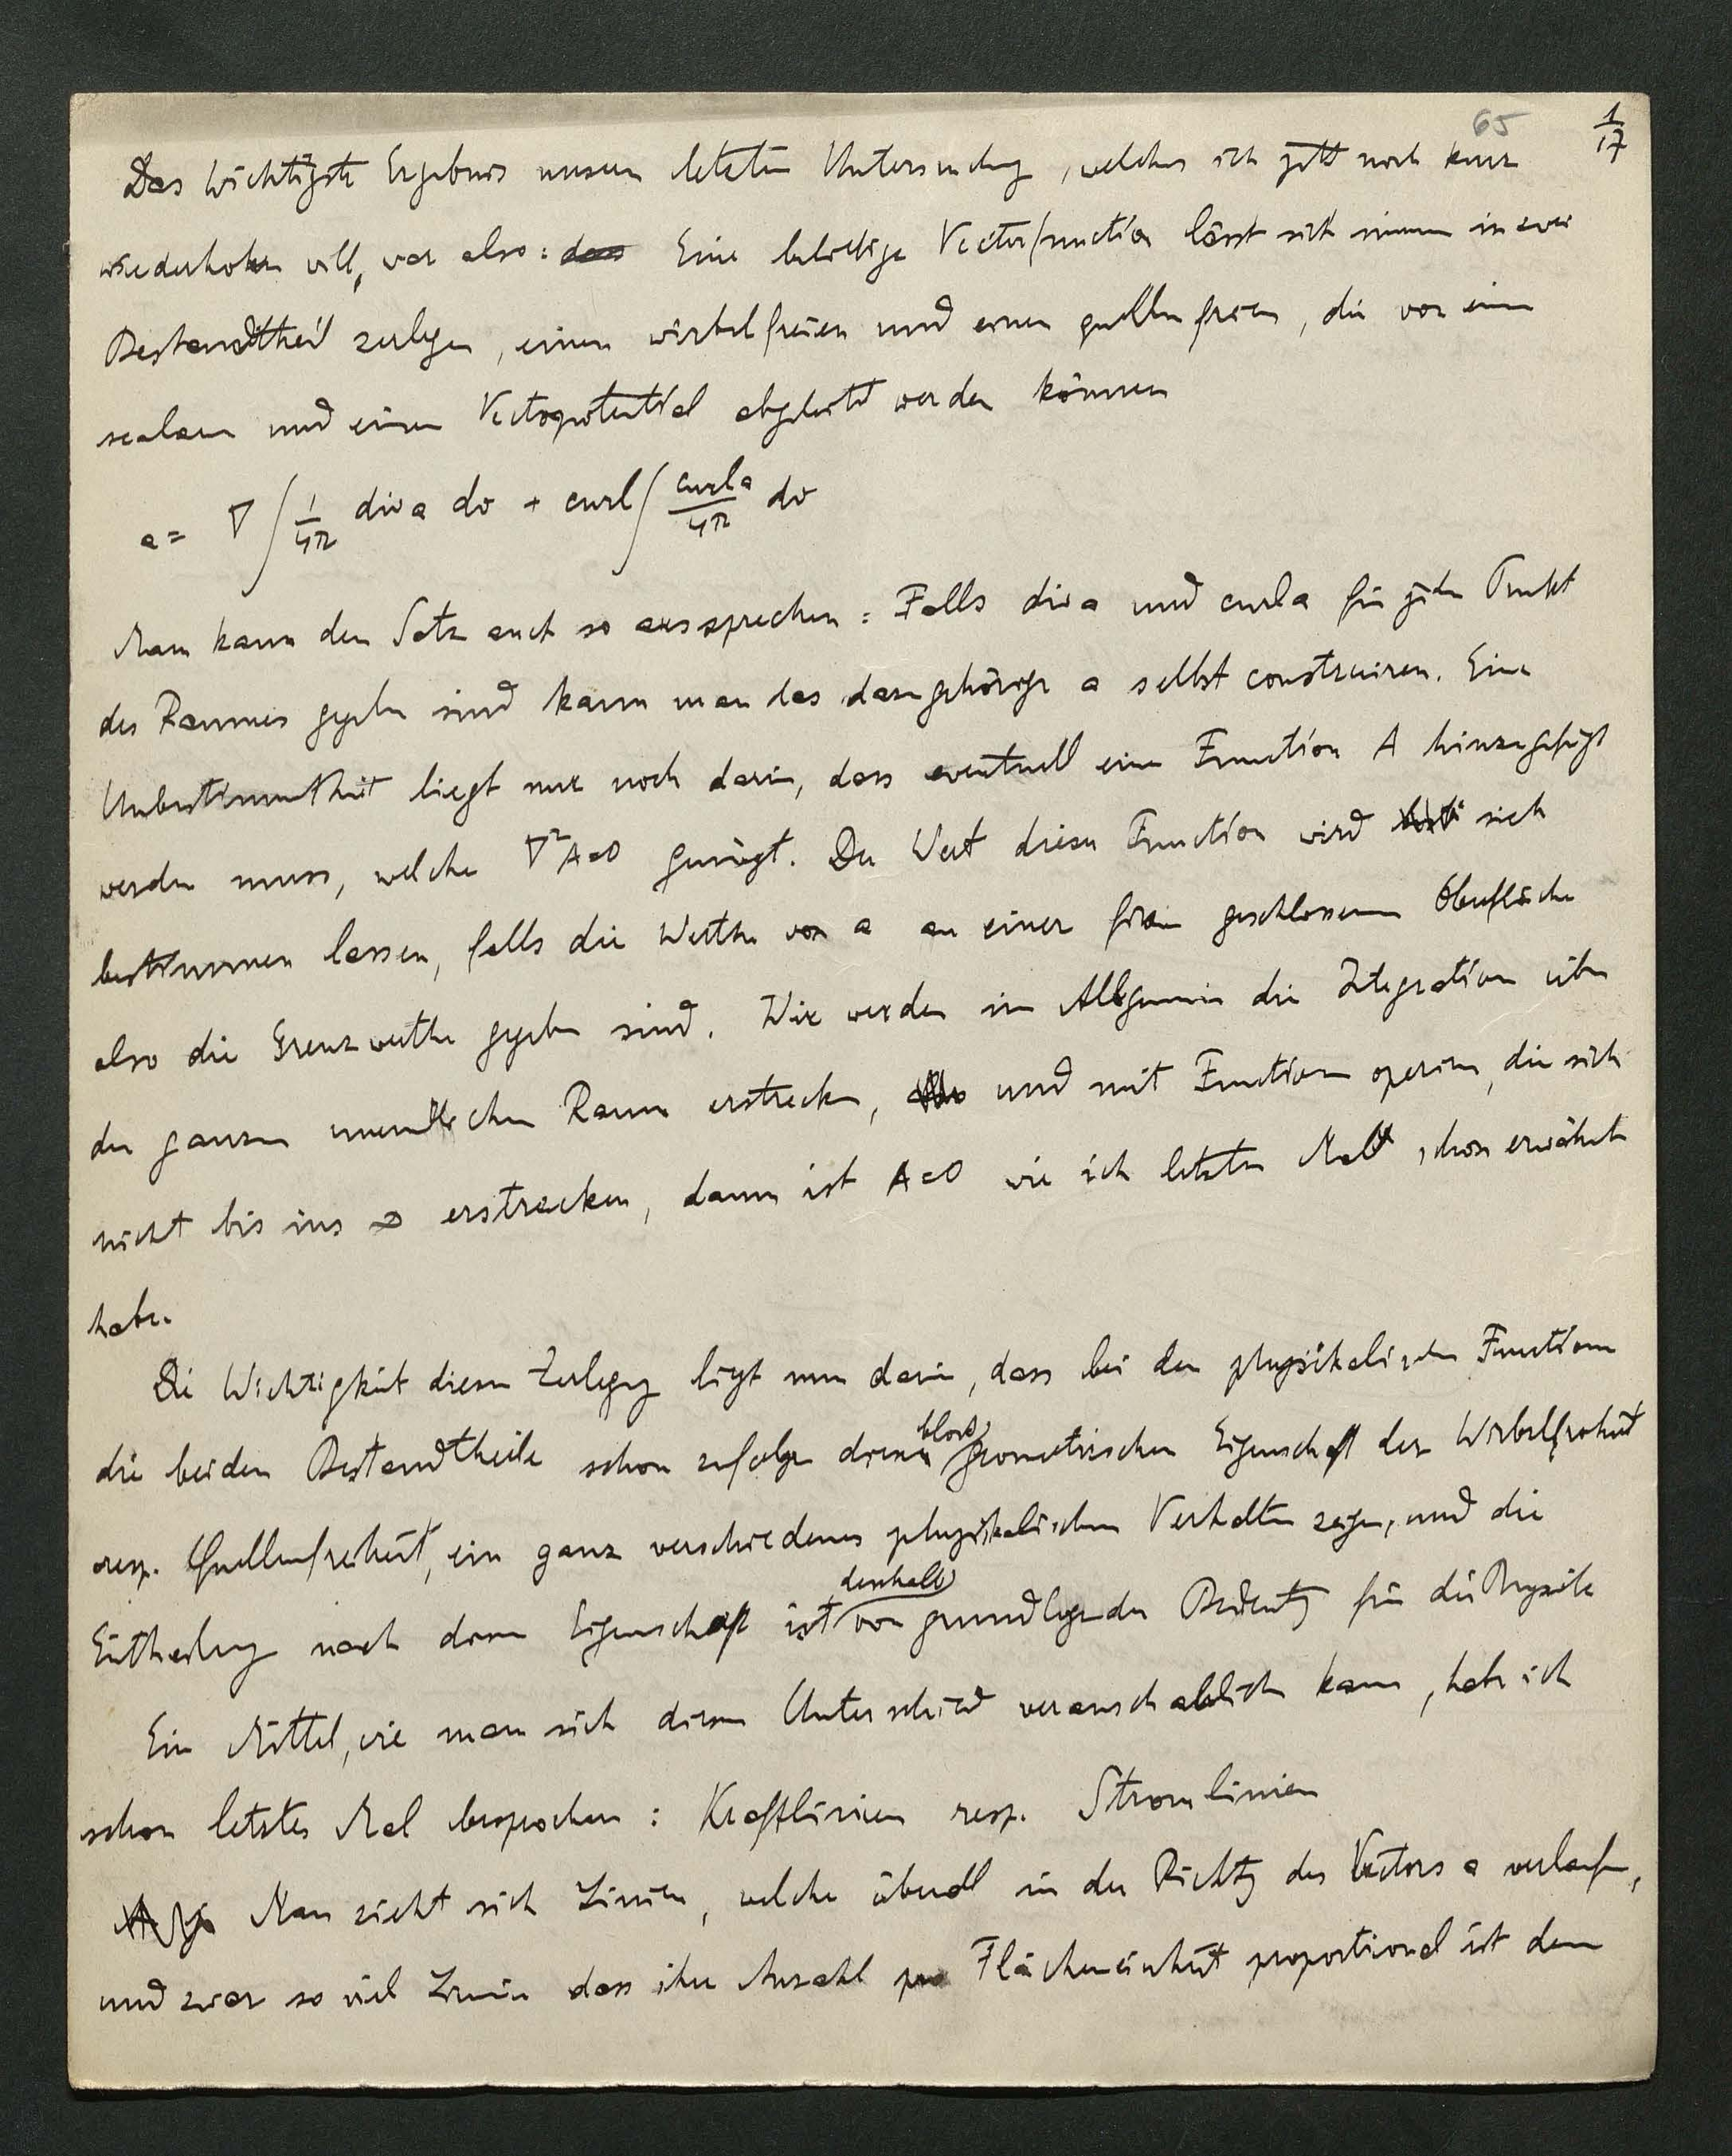 65 1/17
Das wichtigste Ergebnis unserer letzten Untersuchung, welches ich jetzt noch kurz
wiederholen will, war also: dass Eine beliebige Vectorfunction lässt sich immer in zwei
Bestandtheil zerlegen, einen wirbelfreien und einen quellenfreien, die von einem
scalaren und einem Vectorpotential abgeleitet werden können
a = ∇ ∫ 1/4π div a dv + curl ∫ curl a/4π dv
Man kann den Satz auch so aussprechen: Falls div a und curl a für jeden Punkt
des Raumes gegeben sind kann man das dazugehörige a selbst construiren. Eine
Unbestimmtheit liegt nur noch darin, dass eventuell eine Function A hinzugefügt
werden muss, welche ∇²A=0 genügt. Der Wert dieser Function wird sich
bestimmen lassen, falls die Werthe von a an einer geschlossenen Oberfläche
also die Grenzwerthe gegeben sind. Wir werden im Allgemeinen die Integration über
den ganzen unendlichen Raum erstrecken, und mit Functionen operiren, die sich
nicht bis ins ∞ erstrecken, dann ist A=0 wie ich letztes Mal schon erwähnt
habe.
Die Wichtigkeit dieser Zerlegung liegt nun darin, dass bei den physikalischen Functionen
die beiden Bestandtheile schon zufolge dieser bloss geometrischen Eigenschaft der Wirbelfreiheit
resp. Quellenfreiheit, ein ganz verschiedenes physikalisches Verhalten zeigen, und die
Eintheilung nach dieser Eigenschaft ist deshalb von grundlegender Bedeutung für die Physik
Ein Mittel, wie man sich diesen Unterschied veranschaulichen kann, habe ich
schon letztes Mal besprochen: Kraftlinien resp. Stromlinien
Man zieht sich Linien, welche überall in der Richtung des Vectors a verlaufen,
und zwar so viel Linien dass ihre Anzahl pro Flächeneinheit proportional ist dem